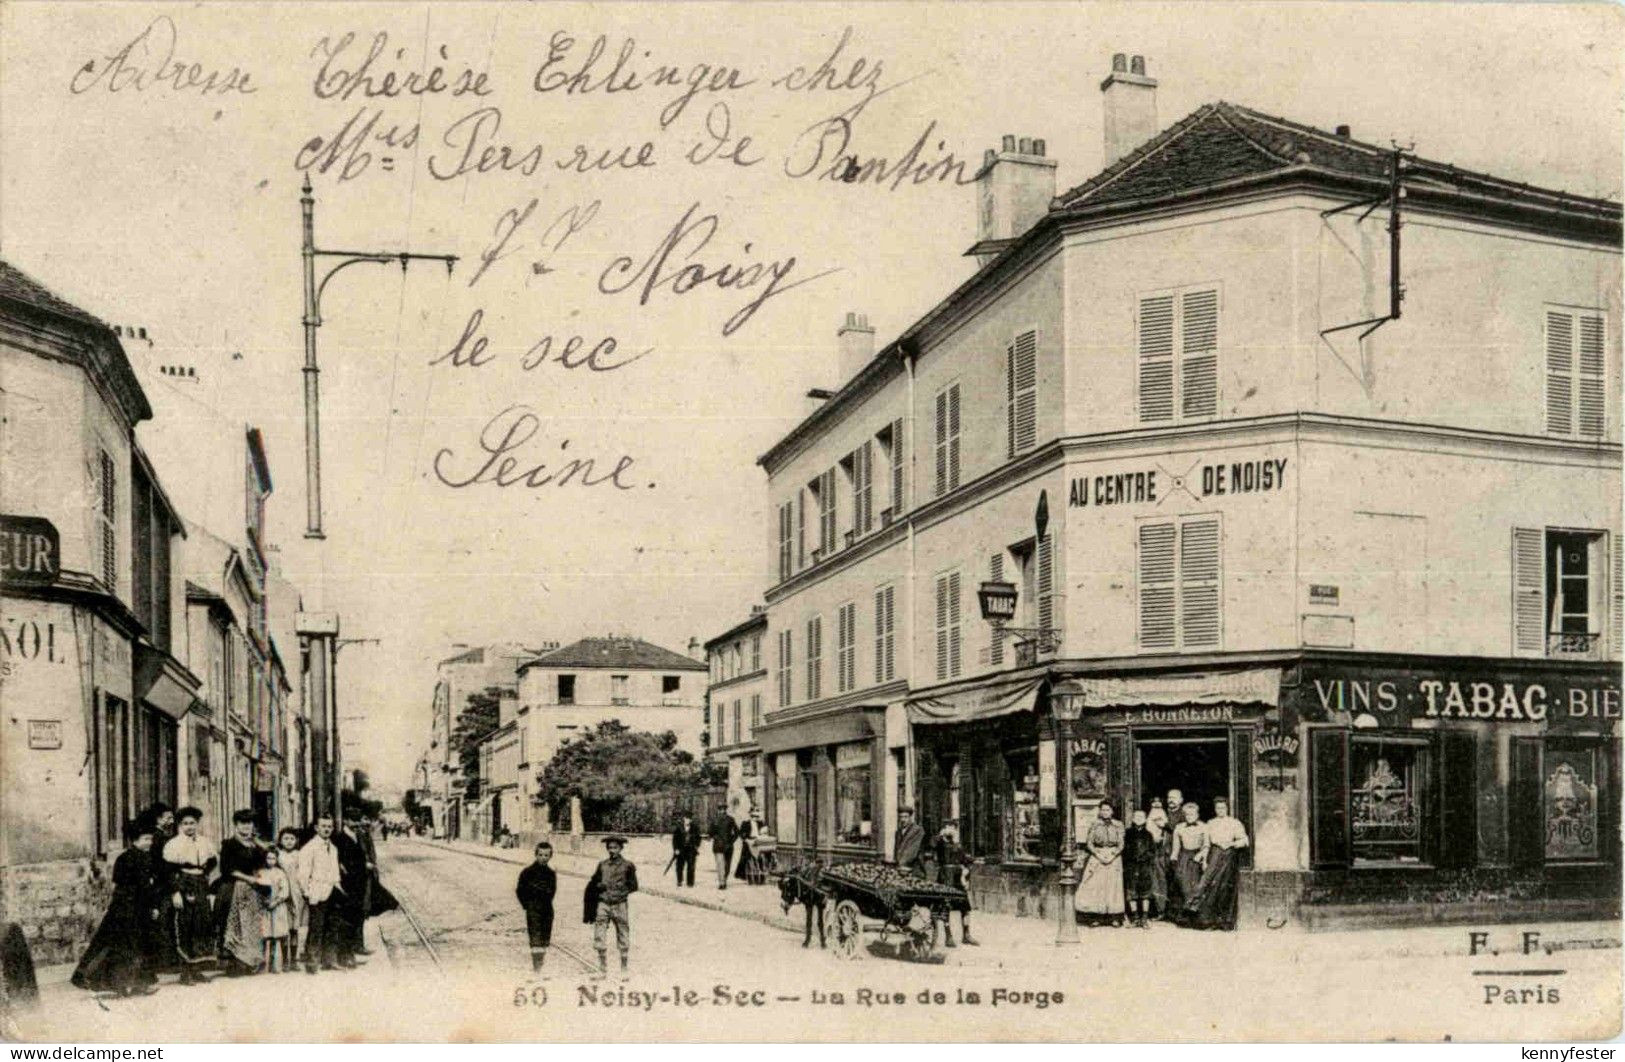 Adresse Thérèse Ehlinger chez
Mrs Pers rue de Pantin
Noisy
le sec
Seine.
EUR
NOL
AU CENTRE DE NOISY
TABAC
VINS · TABAC · BIÈ
E. BONNETON
TABAC
BILLARD
50 Noisy-le-Sec — La Rue de la Forge
F. F.
Paris
delcampe.net
kennyfester